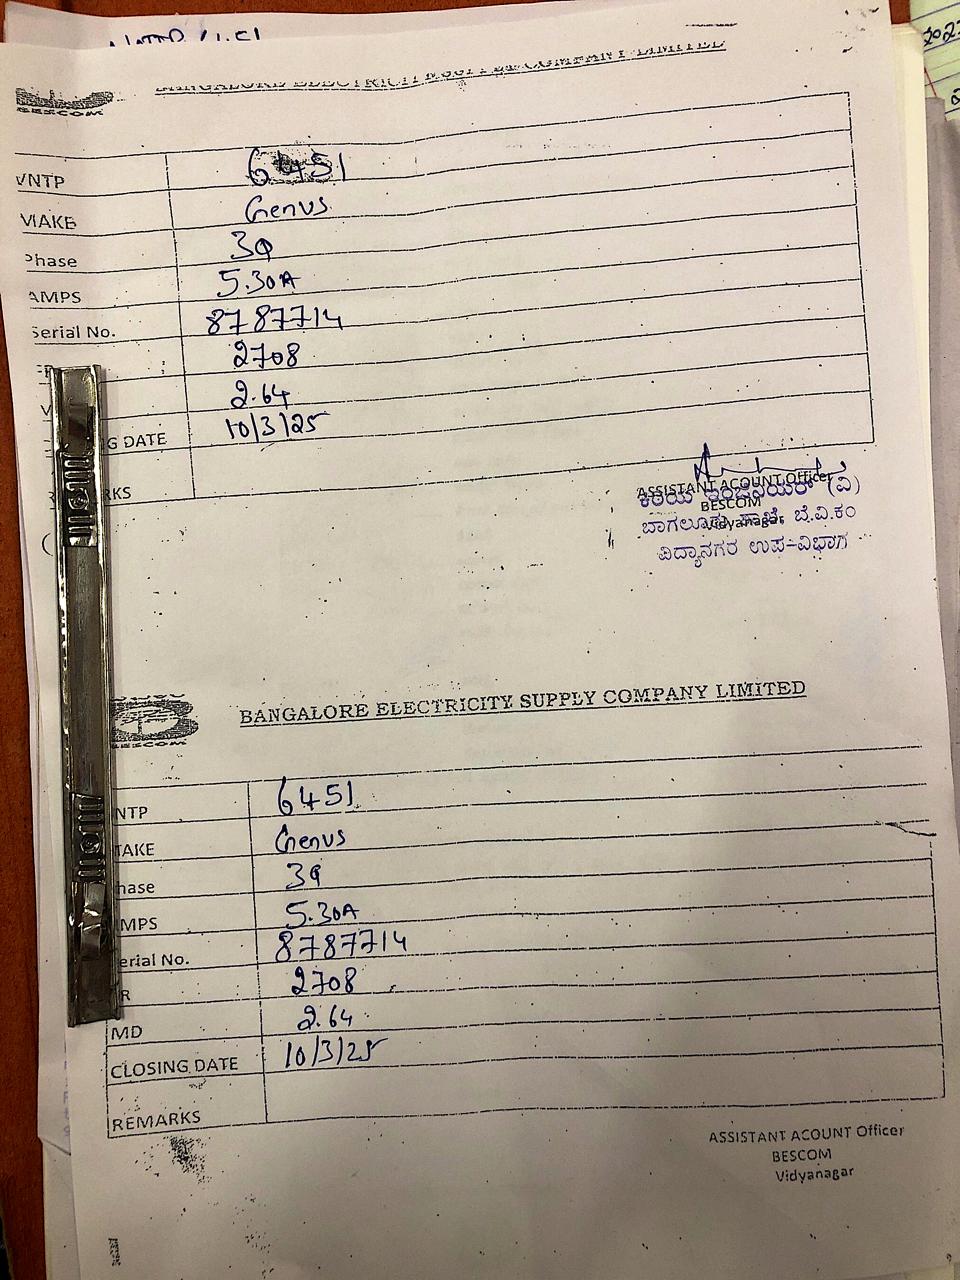 BANGALORE ELECTRICITY SUPPLY COMPANY LIMITED
BESCOM
VNTP 6451
MAKE Genus
Phase 3Φ
AMPS 5.30A
Serial No. 8787714
2708
2.64
G DATE 10/3/25
RKS
ASSISTANT ACOUNT Officer
BESCOM
Vidyanagar
ಕಿರಿಯ ಇಂಜಿನಿಯರ್ (ವಿ)
ಬಾಗಲೂರು ಶಾಖೆ, ಬೆ.ವಿ.ಕಂ
ವಿದ್ಯಾನಗರ ಉಪ-ವಿಭಾಗ
BANGALORE ELECTRICITY SUPPLY COMPANY LIMITED
BESCOM
NTP 6451
TAKE Genus
hase 3Φ
MPS 5.30A
erial No. 8787714
R 2708
MD 2.64
CLOSING DATE 10/3/25
REMARKS
ASSISTANT ACOUNT Officer
BESCOM
Vidyanagar